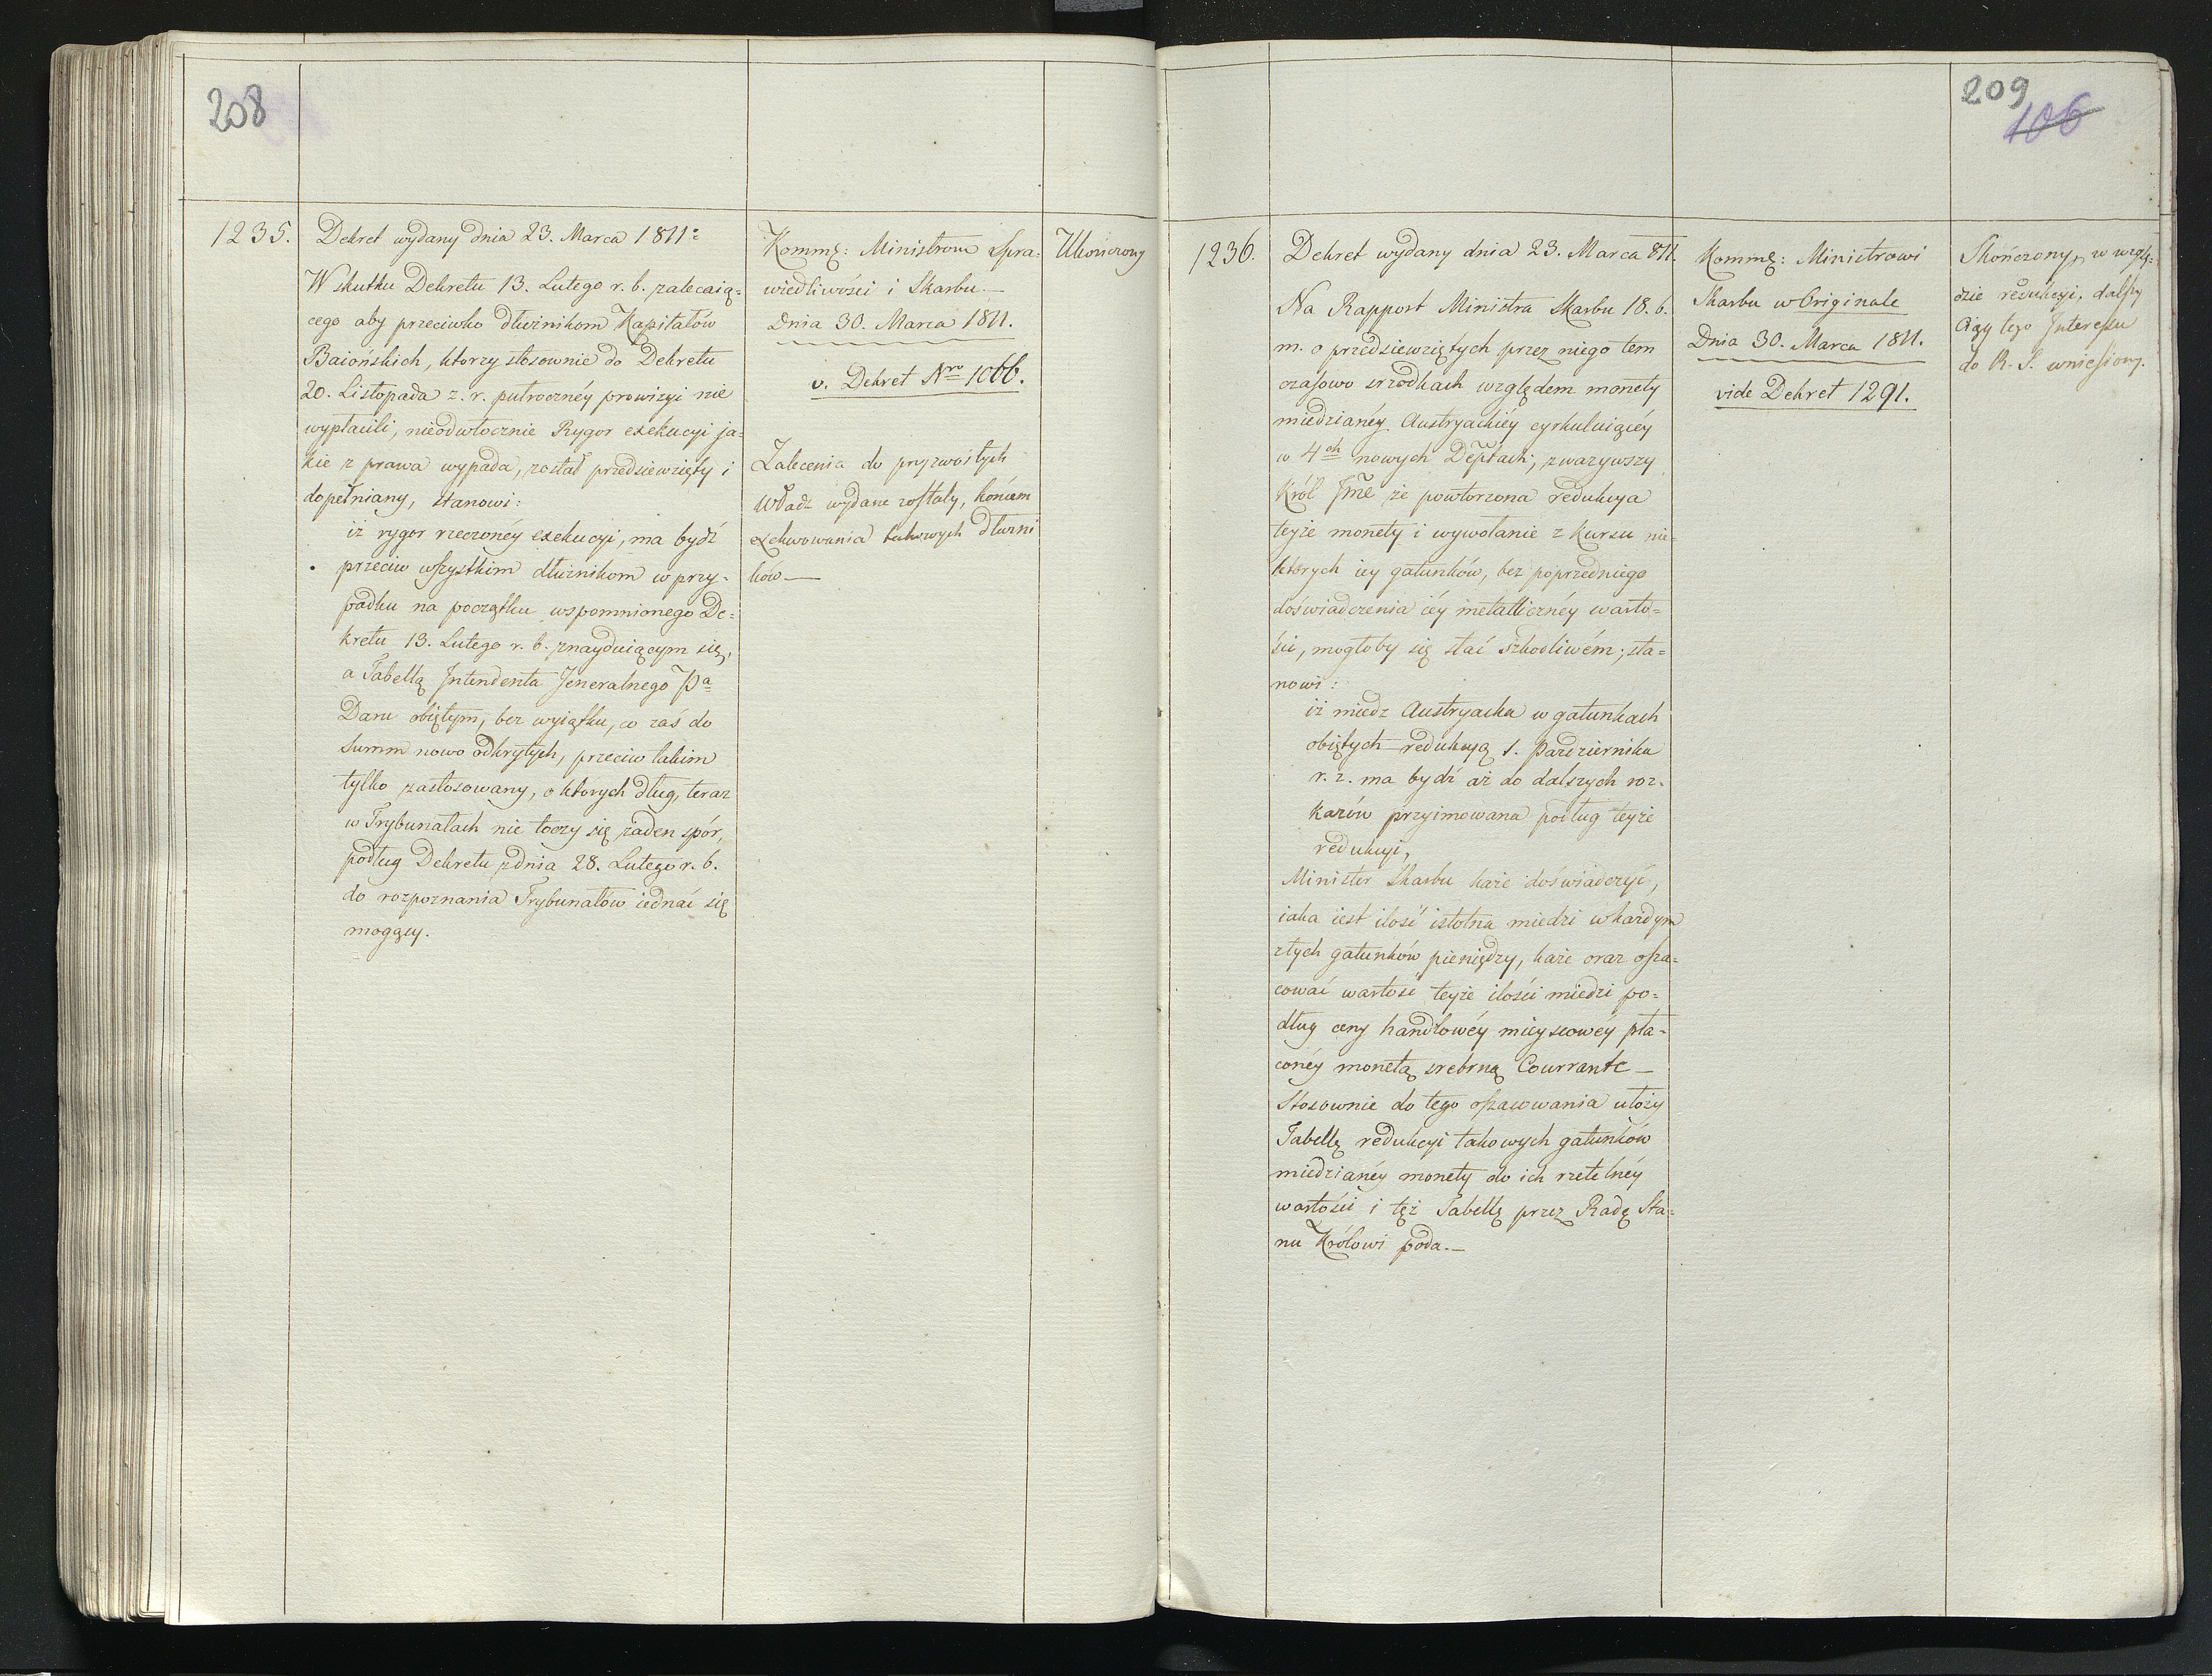 208
1235.
Dekret wydany dnia 23. Marca 1811:
W skutku Dekretu 13. Lutego r. b. zalecaią-
cego aby przeciwko dłużnikom Kapitałów
Baiońskich, ktorzy stosownie do Dekretu
20. Listopada z. r. pułroczney prowizyi nie
wypłacili, nieodwłocznie Rygor exekucyi ja-
kie z prawa wypada, został przedsiewzięty i
dopełniany, stanowi:
iż rygor rzeczonéy exekucyi, ma bydź
przeciw wszystkim dłużnikom w przy-
padku na początku wspomnionego De-
kretu 13. Lutego r. b. znayduiącym się,
a Tabellą Intendenta Jeneralnego Pa
Daru obiętym, bez wyiątku, co zaś do
Summ nowo odkrytych, przeciw takim
tylko zastosowany, o których dług, teraz
w Trybunałach nie toczy się żaden spór,
podług Dekretu z dnia 28. Lutego r. b.
do rozpoznania Trybunałow iednać się
mogący.
Kommę: Ministrom Spra-
wiedliwości i Skarbu.—
Dnia 30. Marca 1811.
v. Dekret Nro 1066.
Zalecenia do przyzwoitych
Władz wydane zostały, końcem
exekwowania takowych dłużni
ków—
Ukończony
209
106
1236.
Dekret wydany dnia 23. Marca 811.
Na Rapport Ministra Skarbu 18. b.
m. o przedsiewziętych przez niego tem
czasowo srzodkach względem monety
miedzianéy Austryackiéy cyrkuluiącéy
w 4ch nowych Deptach; zwazywszy
Król Jme że powtorzona redukcya
teyże monety i wywołanie z kursu nie-
których iey gatunków, bez poprzedniego
doświadczenia iéy metalliczney warto-
ści, mogłoby się stać szkodliwém; sta-
nowi:
iż miedz Austryacka w gatunkach
obiętych redukcyą 1. Pazdziernika
r. z. ma bydź aż do dalszych roz-
kazów przyimowana podług teyże
redukcyi,
Minister Skarbu każe doświadczyć,
iaka iest ilość istotna miedzi w każdym
z tych gatunków pieniędzy, każe oraz osza-
cować wartość teyże ilości miedzi po-
dług ceny handlowéy mieyscowéy pła-
conéy monetą srebrną Courrante —
Stosownie do tego oszacowania ułoży
Tabellę redukcyi takowych gatunków
miedzianéy monety do ich rzetelnéy
wartości i tęż Tabellę przez Radę Sta-
nu Królowi poda.—
Kommę: Ministrowi
Skarbu w Originale
Dnia 30. Marca 1811.
vide Dekret 1291.
Skończony, w wzglę-
dzie redukcyi, dalszy
Ciąg tego Interessu
do R. S. wniesiony.